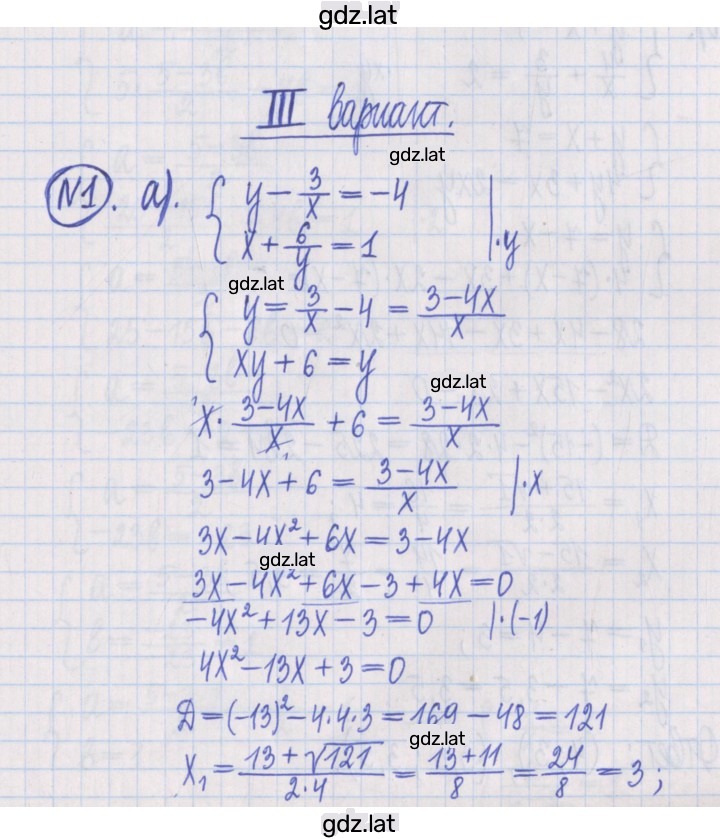 gdz.lat
III вариант.
gdz.lat
№1. а). { y − 3/x = −4
x + 6/y = 1 |·y
gdz.lat
{ y = 3/x − 4 = (3−4x)/x
xy + 6 = y
gdz.lat
x · (3−4x)/x + 6 = (3−4x)/x
3−4x+6 = (3−4x)/x |·x
3x−4x²+6x = 3−4x
gdz.lat
3x−4x²+6x−3+4x=0
−4x²+13x−3=0 |·(−1)
4x²−13x+3=0
D=(−13)²−4·4·3=169−48=121
gdz.lat
x₁ = (13+√121)/(2·4) = (13+11)/8 = 24/8 = 3;
gdz.lat